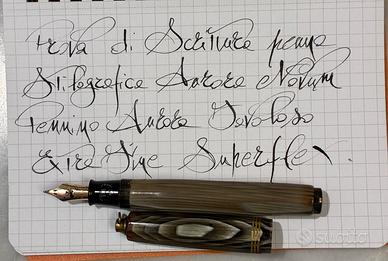 Prova di Scritture penna
Stilografica Aurora Novum
Pennino Aurora Favoloso
Extra Fine Superflex.
subito